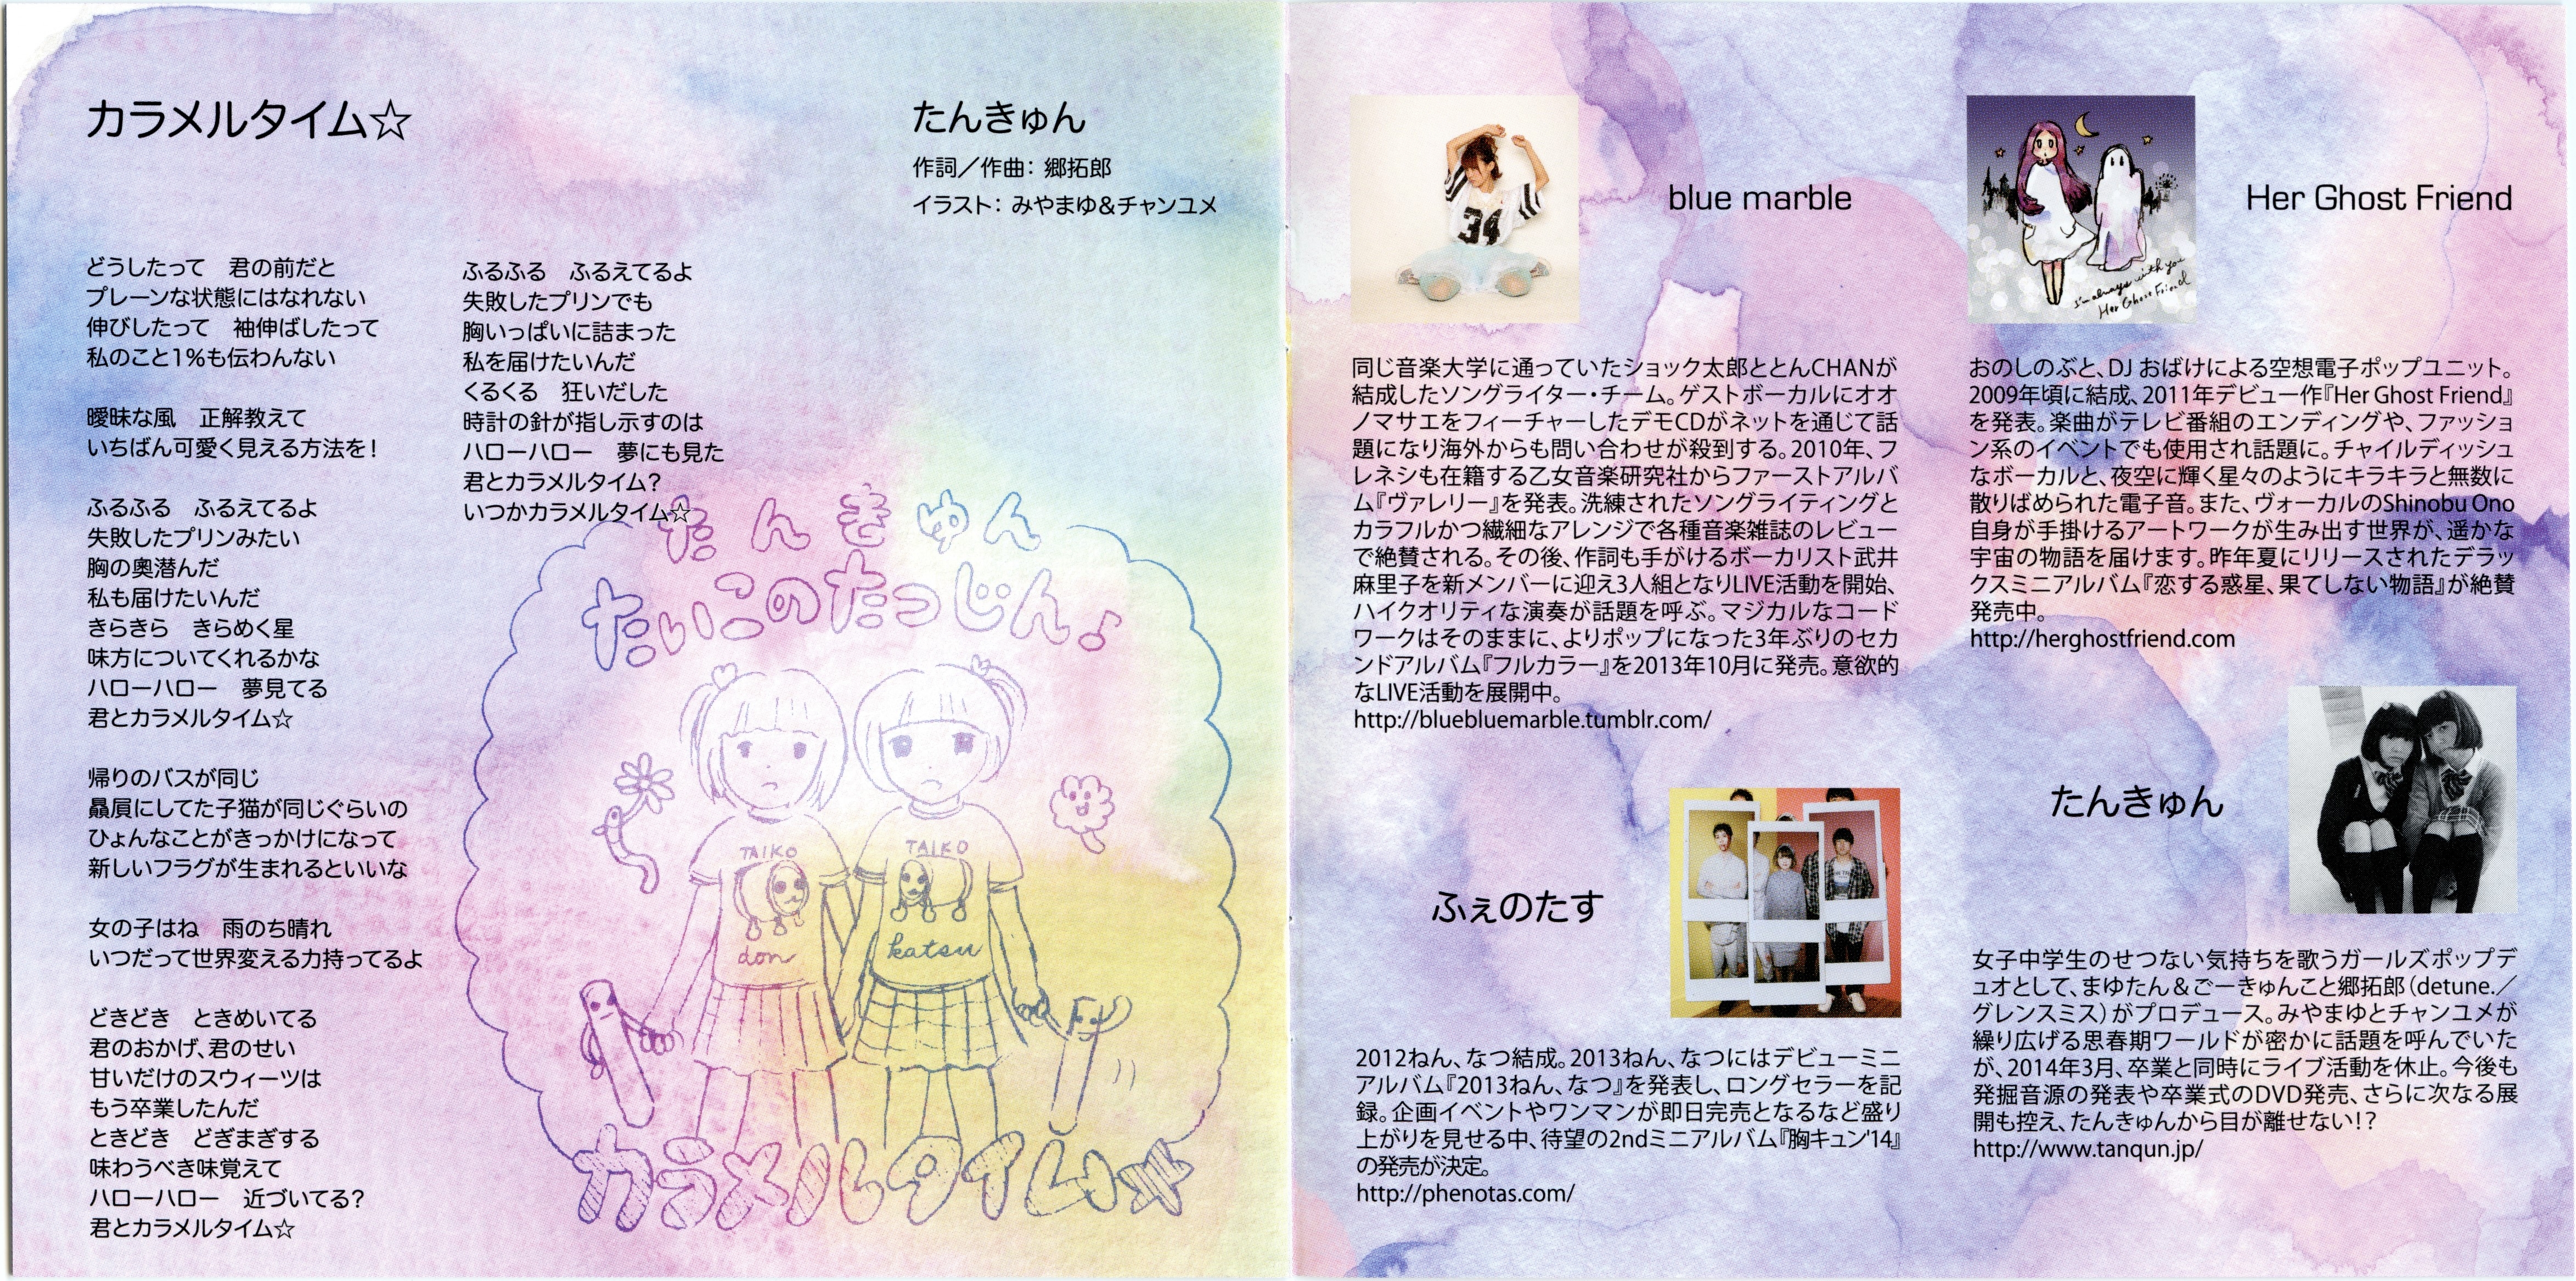 カラメルタイム☆
たんきゅん
作詞／作曲：郷拓郎
イラスト：みやまゆ＆チャンユメ
どうしたって　君の前だと
プレーンな状態にはなれない
伸びしたって　袖伸ばしたって
私のこと1％も伝わんない
曖昧な風　正解教えて
いちばん可愛く見える方法を！
ふるふる　ふるえてるよ
失敗したプリンみたい
胸の奥潜んだ
私も届けたいんだ
きらきら　きらめく星
味方についてくれるかな
ハローハロー　夢見てる
君とカラメルタイム☆
帰りのバスが同じ
贔屓にしてた子猫が同じぐらいの
ひょんなことがきっかけになって
新しいフラグが生まれるといいな
女の子はね　雨のち晴れ
いつだって世界変える力持ってるよ
どきどき　ときめいてる
君のおかげ、君のせい
甘いだけのスウィーツは
もう卒業したんだ
ときどき　どぎまぎする
味わうべき味覚えて
ハローハロー　近づいてる？
君とカラメルタイム☆
ふるふる　ふるえてるよ
失敗したプリンでも
胸いっぱいに詰まった
私を届けたいんだ
くるくる　狂いだした
時計の針が指し示すのは
ハローハロー　夢にも見た
君とカラメルタイム？
いつかカラメルタイム☆
たんきゅん
たいこのたつじん♪
TAIKO
don
TAIKO
katsu
カラメルタイム☆
34
blue marble
同じ音楽大学に通っていたショック太郎ととんCHANが
結成したソングライター・チーム。ゲストボーカルにオオ
ノマサエをフィーチャーしたデモCDがネットを通じて話
題になり海外からも問い合わせが殺到する。2010年、フ
レネシも在籍する乙女音楽研究社からファーストアルバ
ム『ヴァレリー』を発表。洗練されたソングライティングと
カラフルかつ繊細なアレンジで各種音楽雑誌のレビュー
で絶賛される。その後、作詞も手がけるボーカリスト武井
麻里子を新メンバーに迎え3人組となりLIVE活動を開始、
ハイクオリティな演奏が話題を呼ぶ。マジカルなコード
ワークはそのままに、よりポップになった3年ぶりのセカ
ンドアルバム『フルカラー』を2013年10月に発売。意欲的
なLIVE活動を展開中。
http://bluebluemarble.tumblr.com/
ふぇのたす
2012ねん、なつ結成。2013ねん、なつにはデビューミニ
アルバム『2013ねん、なつ』を発表し、ロングセラーを記
録。企画イベントやワンマンが即日完売となるなど盛り
上がりを見せる中、待望の2ndミニアルバム『胸キュン'14』
の発売が決定。
http://phenotas.com/
I'm always with you
Her Ghost Friend
Her Ghost Friend
おのしのぶと、DJ おばけによる空想電子ポップユニット。
2009年頃に結成、2011年デビュー作『Her Ghost Friend』
を発表。楽曲がテレビ番組のエンディングや、ファッショ
ン系のイベントでも使用され話題に。チャイルディッシュ
なボーカルと、夜空に輝く星々のようにキラキラと無数に
散りばめられた電子音。また、ヴォーカルのShinobu Ono
自身が手掛けるアートワークが生み出す世界が、遥かな
宇宙の物語を届けます。昨年夏にリリースされたデラッ
クスミニアルバム『恋する惑星、果てしない物語』が絶賛
発売中。
http://herghostfriend.com
たんきゅん
女子中学生のせつない気持ちを歌うガールズポップデ
ュオとして、まゆたん＆ごーきゅんこと郷拓郎（detune.／
グレンスミス）がプロデュース。みやまゆとチャンユメが
繰り広げる思春期ワールドが密かに話題を呼んでいた
が、2014年3月、卒業と同時にライブ活動を休止。今後も
発掘音源の発表や卒業式のDVD発売、さらに次なる展
開も控え、たんきゅんから目が離せない！？
http://www.tanqun.jp/